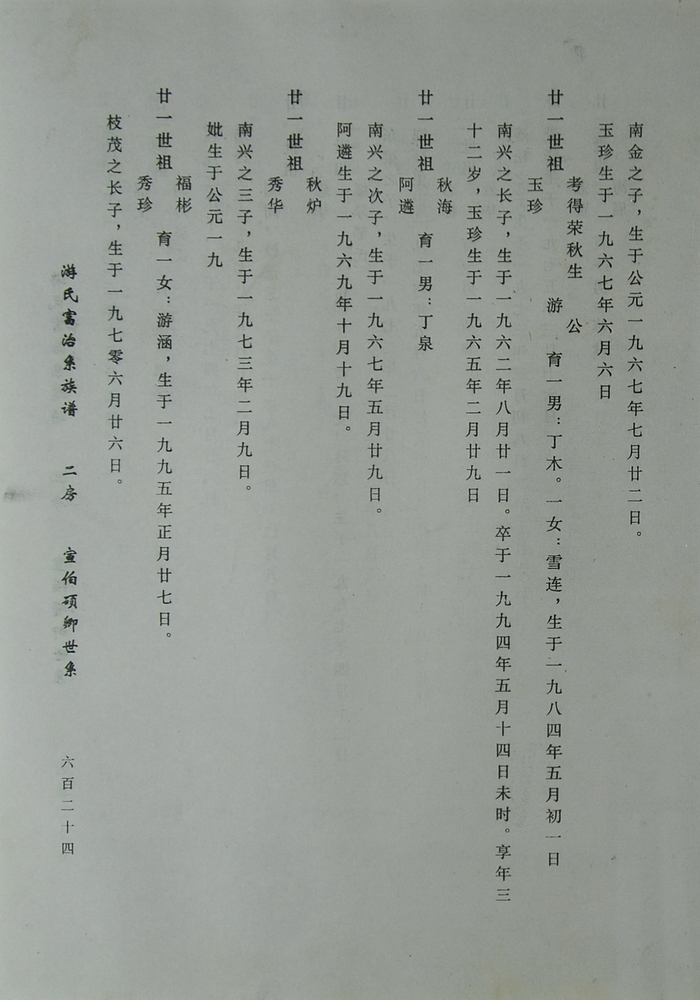 南金之子，生于公元一九六七年七月廿二日。
玉珍生于一九六七年六月六日
廿一世祖
考得荣秋生
玉珍
公
游
育一男：丁木。一女：雪连，生于一九八四年五月初一日
南兴之长子，生于一九六二年八月廿一日。卒于一九九四年五月十四日未时。享年三
十二岁，玉珍生于一九六五年二月廿九日
廿一世祖
秋海
阿遴
育一男：丁泉
南兴之次子，生于一九六七年五月廿九日。
阿遴生于一九六九年十月十九日。
廿一世祖
秋炉
秀华
南兴之三子，生于一九七三年二月九日。
妣生于公元一九
廿一世祖
福彬
秀珍
育一女：游涵，生于一九九五年正月廿七日。
枝茂之长子，生于一九七零六月廿六日。
游氏富治系族谱 二房 宣伯硕卿世系 六百二十四